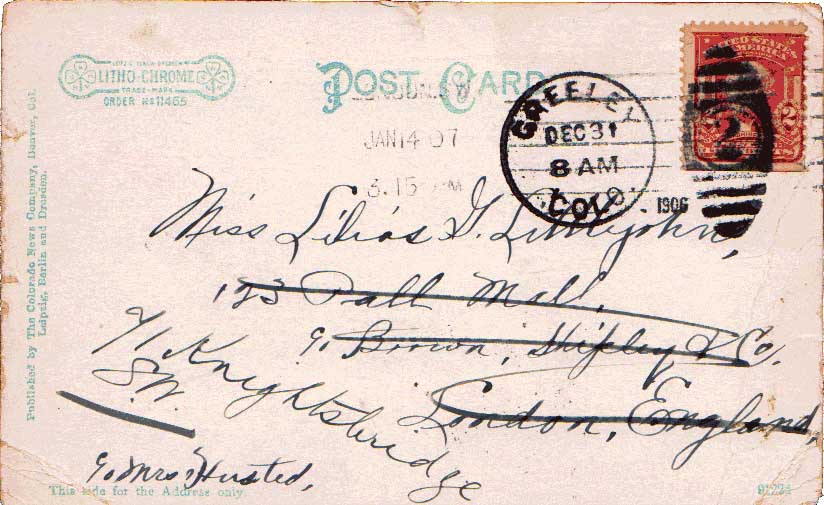 LITHO-CHROME
TRADE-MARK
ORDER No 11465
POST CARD
LONDON.S.W
JAN 14 07
3.15 PM
GREELEY
DEC 31
8 AM
COLO.
1906
UNITED STATES
OF AMERICA
2
2
Miss Lilias G. Littlejohn,
123 Pall Mall,
c/o Brown, Shipley & Co.
London, England,
71 Knightsbridge
S.W.
c/o Mrs. Husted,
Published by The Colorado News Company, Denver, Col.
Leipzig, Berlin and Dresden.
This side for the Address only.